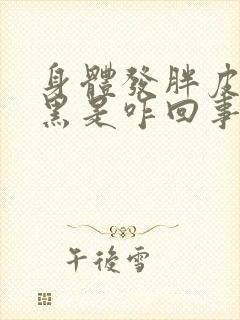 身體發胖皮
黑是咋回事
午後雪